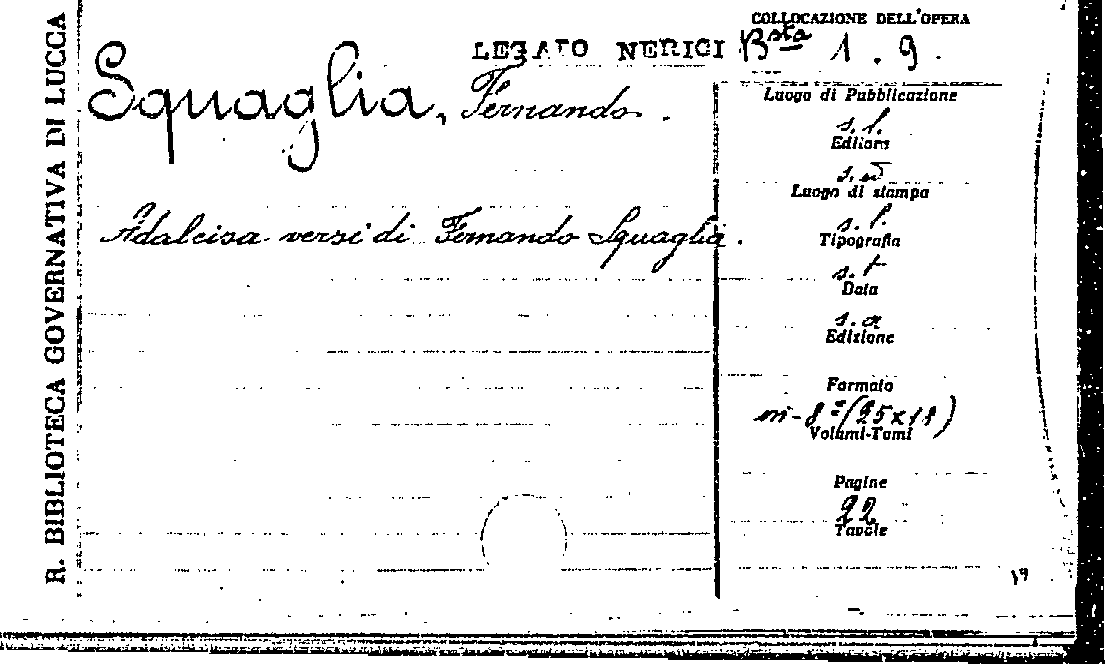 R. BIBLIOTECA GOVERNATIVA DI LUCCA
COLLOCAZIONE DELL'OPERA
LEGATO NERICI Bsta 1.9.
Squaglia, Fernando.
Luogo di Pubblicazione
s. l.
Editore
s. n
Luogo di stampa
Adalcisa versi di Fernando Squaglia.
s. l.
Tipografia
s. t
Data
s. a
Edizione
Formato
in-8° (25x18)
Volumi-Tomi
Pagine
22
Tavole
19